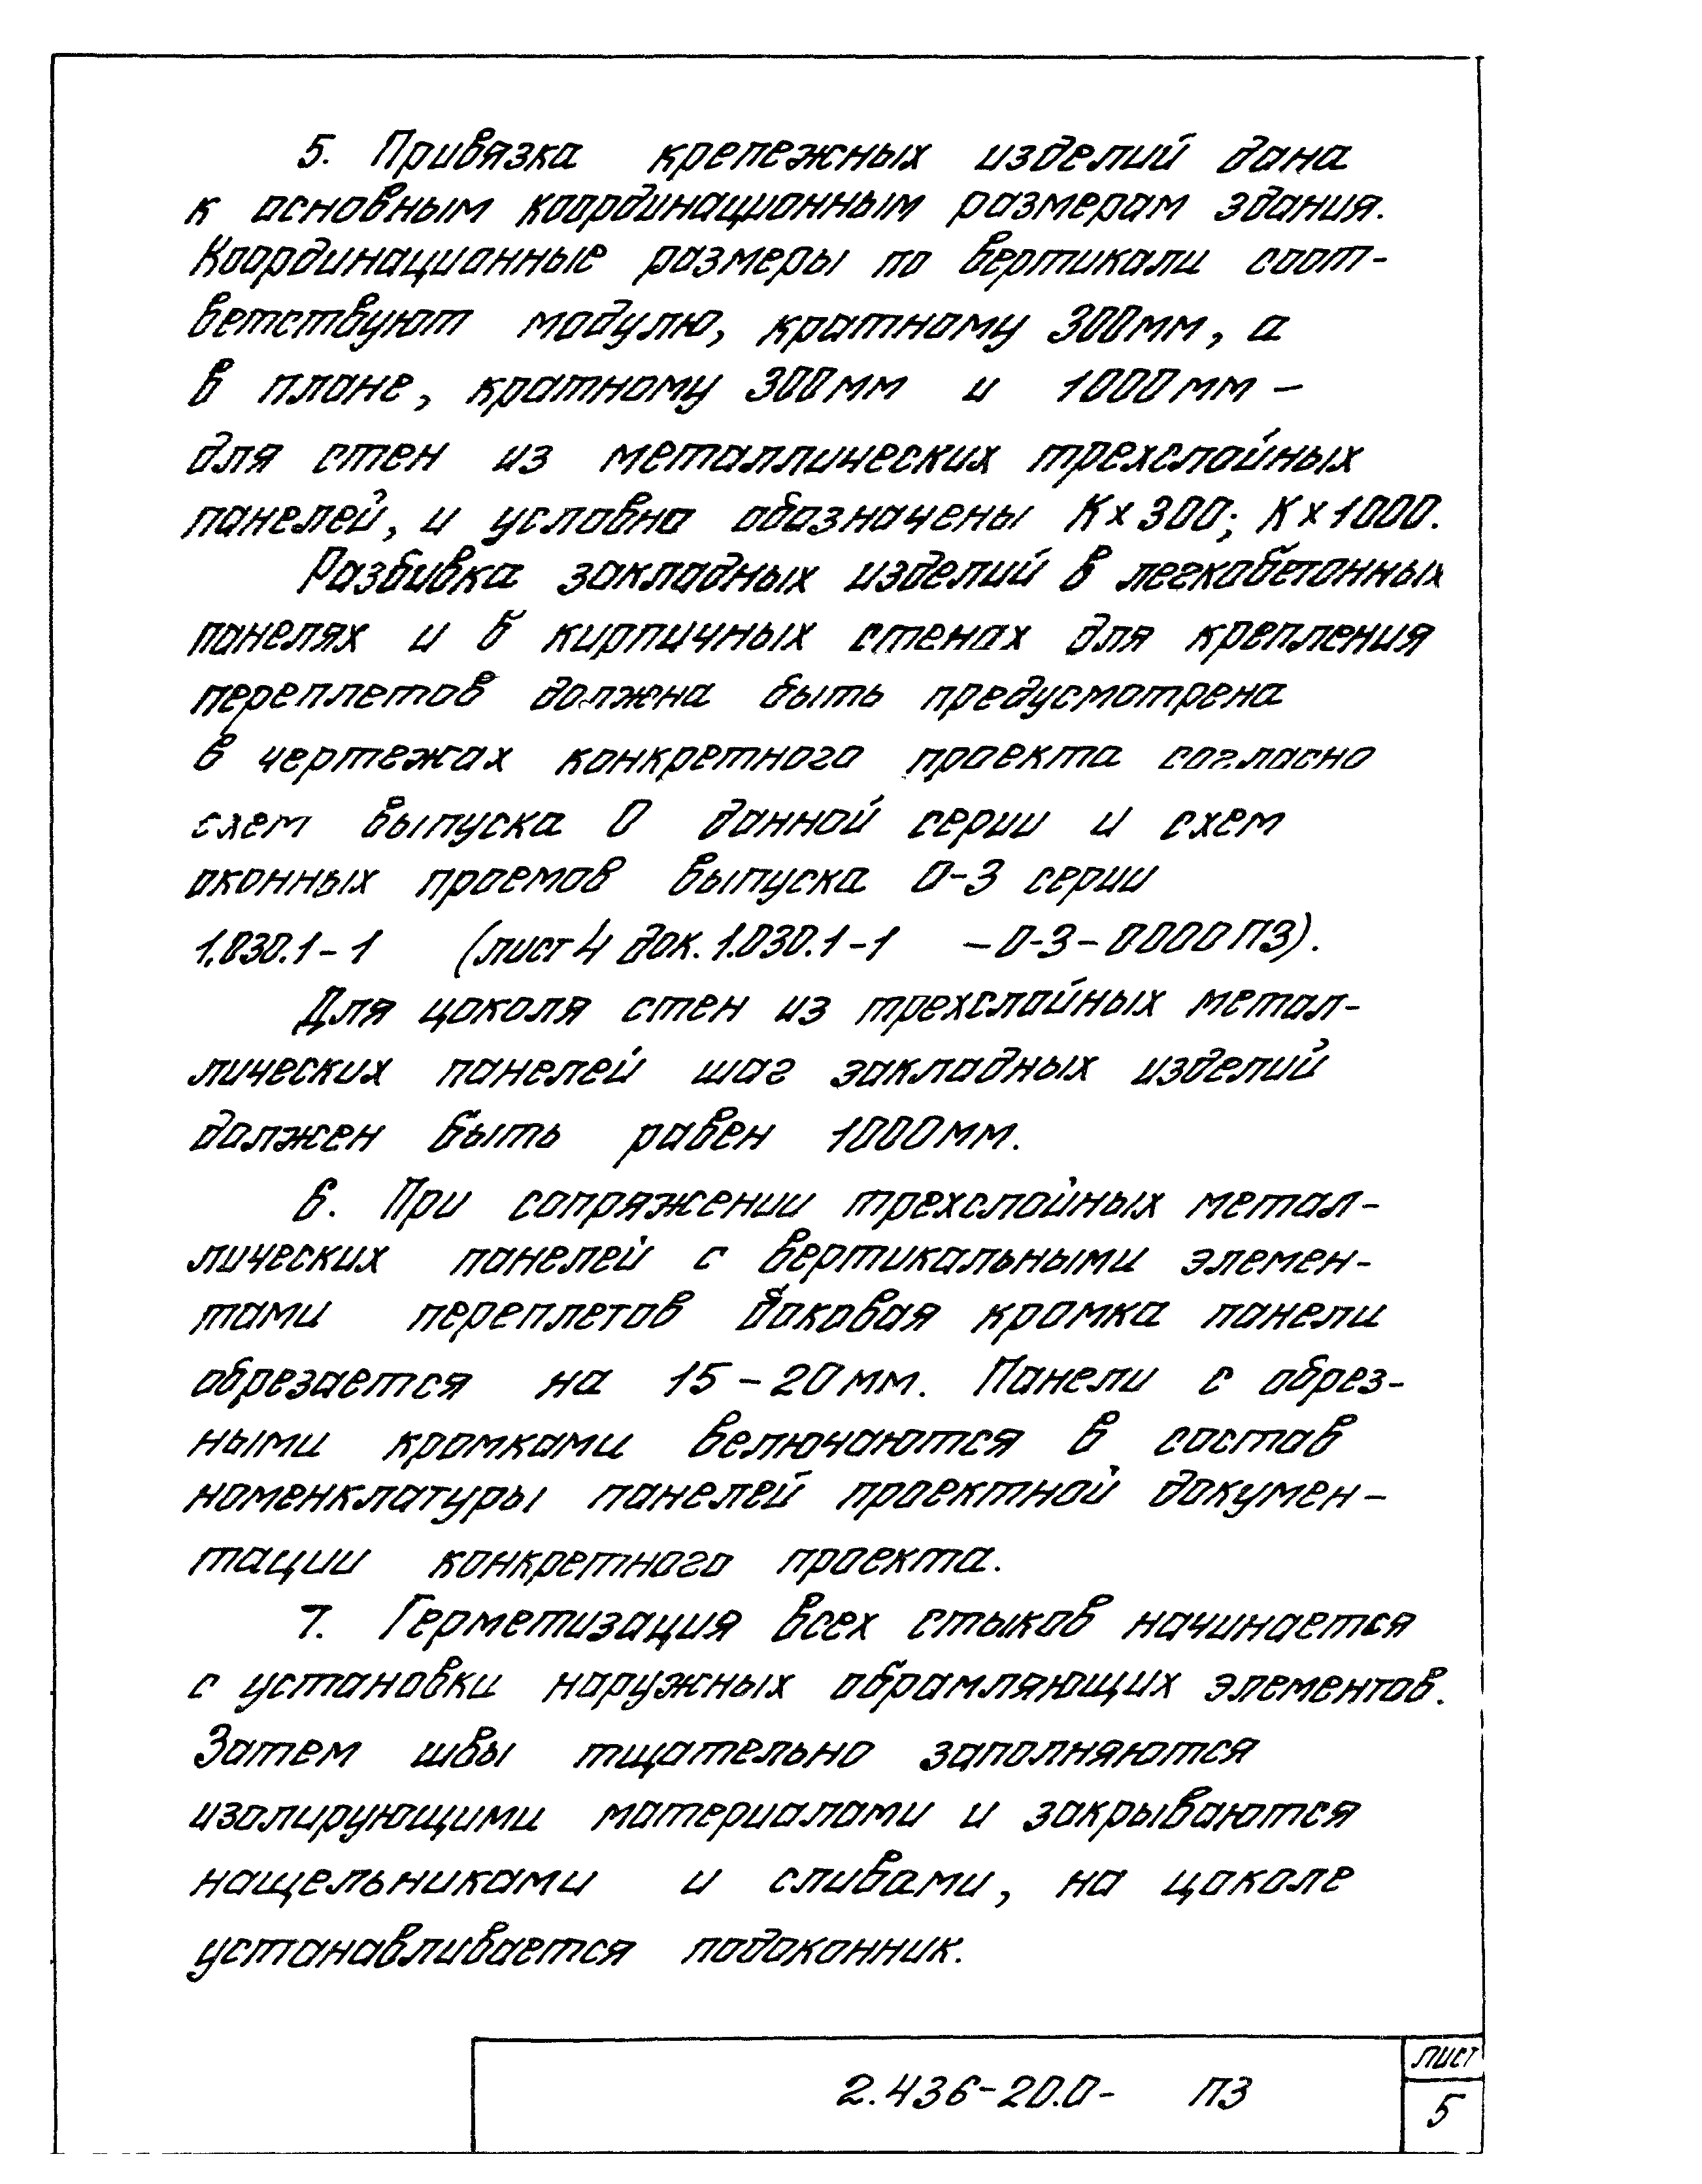 5. Привязка крепежных изделий дана
к основным координационным размерам здания.
Координационные размеры по вертикали соот-
ветствуют модулю, кратному 300мм, а
в плане, кратному 300мм и 1000мм –
для стен из металлических трехслойных
панелей, и условно обозначены К×300; К×1000.
Разбивка закладных изделий в легкобетонных
панелях и в кирпичных стенах для крепления
переплетов должна быть предусмотрена
в чертежах конкретного проекта согласно
схем выпуска 0 данной серии и схем
оконных проемов выпуска 0-3 серии
1.030.1-1 (лист 4 док. 1.030.1-1 –0-3-0000ПЗ).
Для цоколя стен из трехслойных метал-
лических панелей шаг закладных изделий
должен быть равен 1000мм.
6. При сопряжении трехслойных метал-
лических панелей с вертикальными элемен-
тами переплетов боковая кромка панели
обрезается на 15-20мм. Панели с обрез-
ными кромками включаются в состав
номенклатуры панелей проектной докумен-
тации конкретного проекта.
7. Герметизация всех стыков начинается
с установки наружных обрамляющих элементов.
Затем швы тщательно заполняются
изолирующими материалами и закрываются
нащельниками и сливами, на цоколе
устанавливается подоконник.
2.436-20.0- ПЗ
лист
5